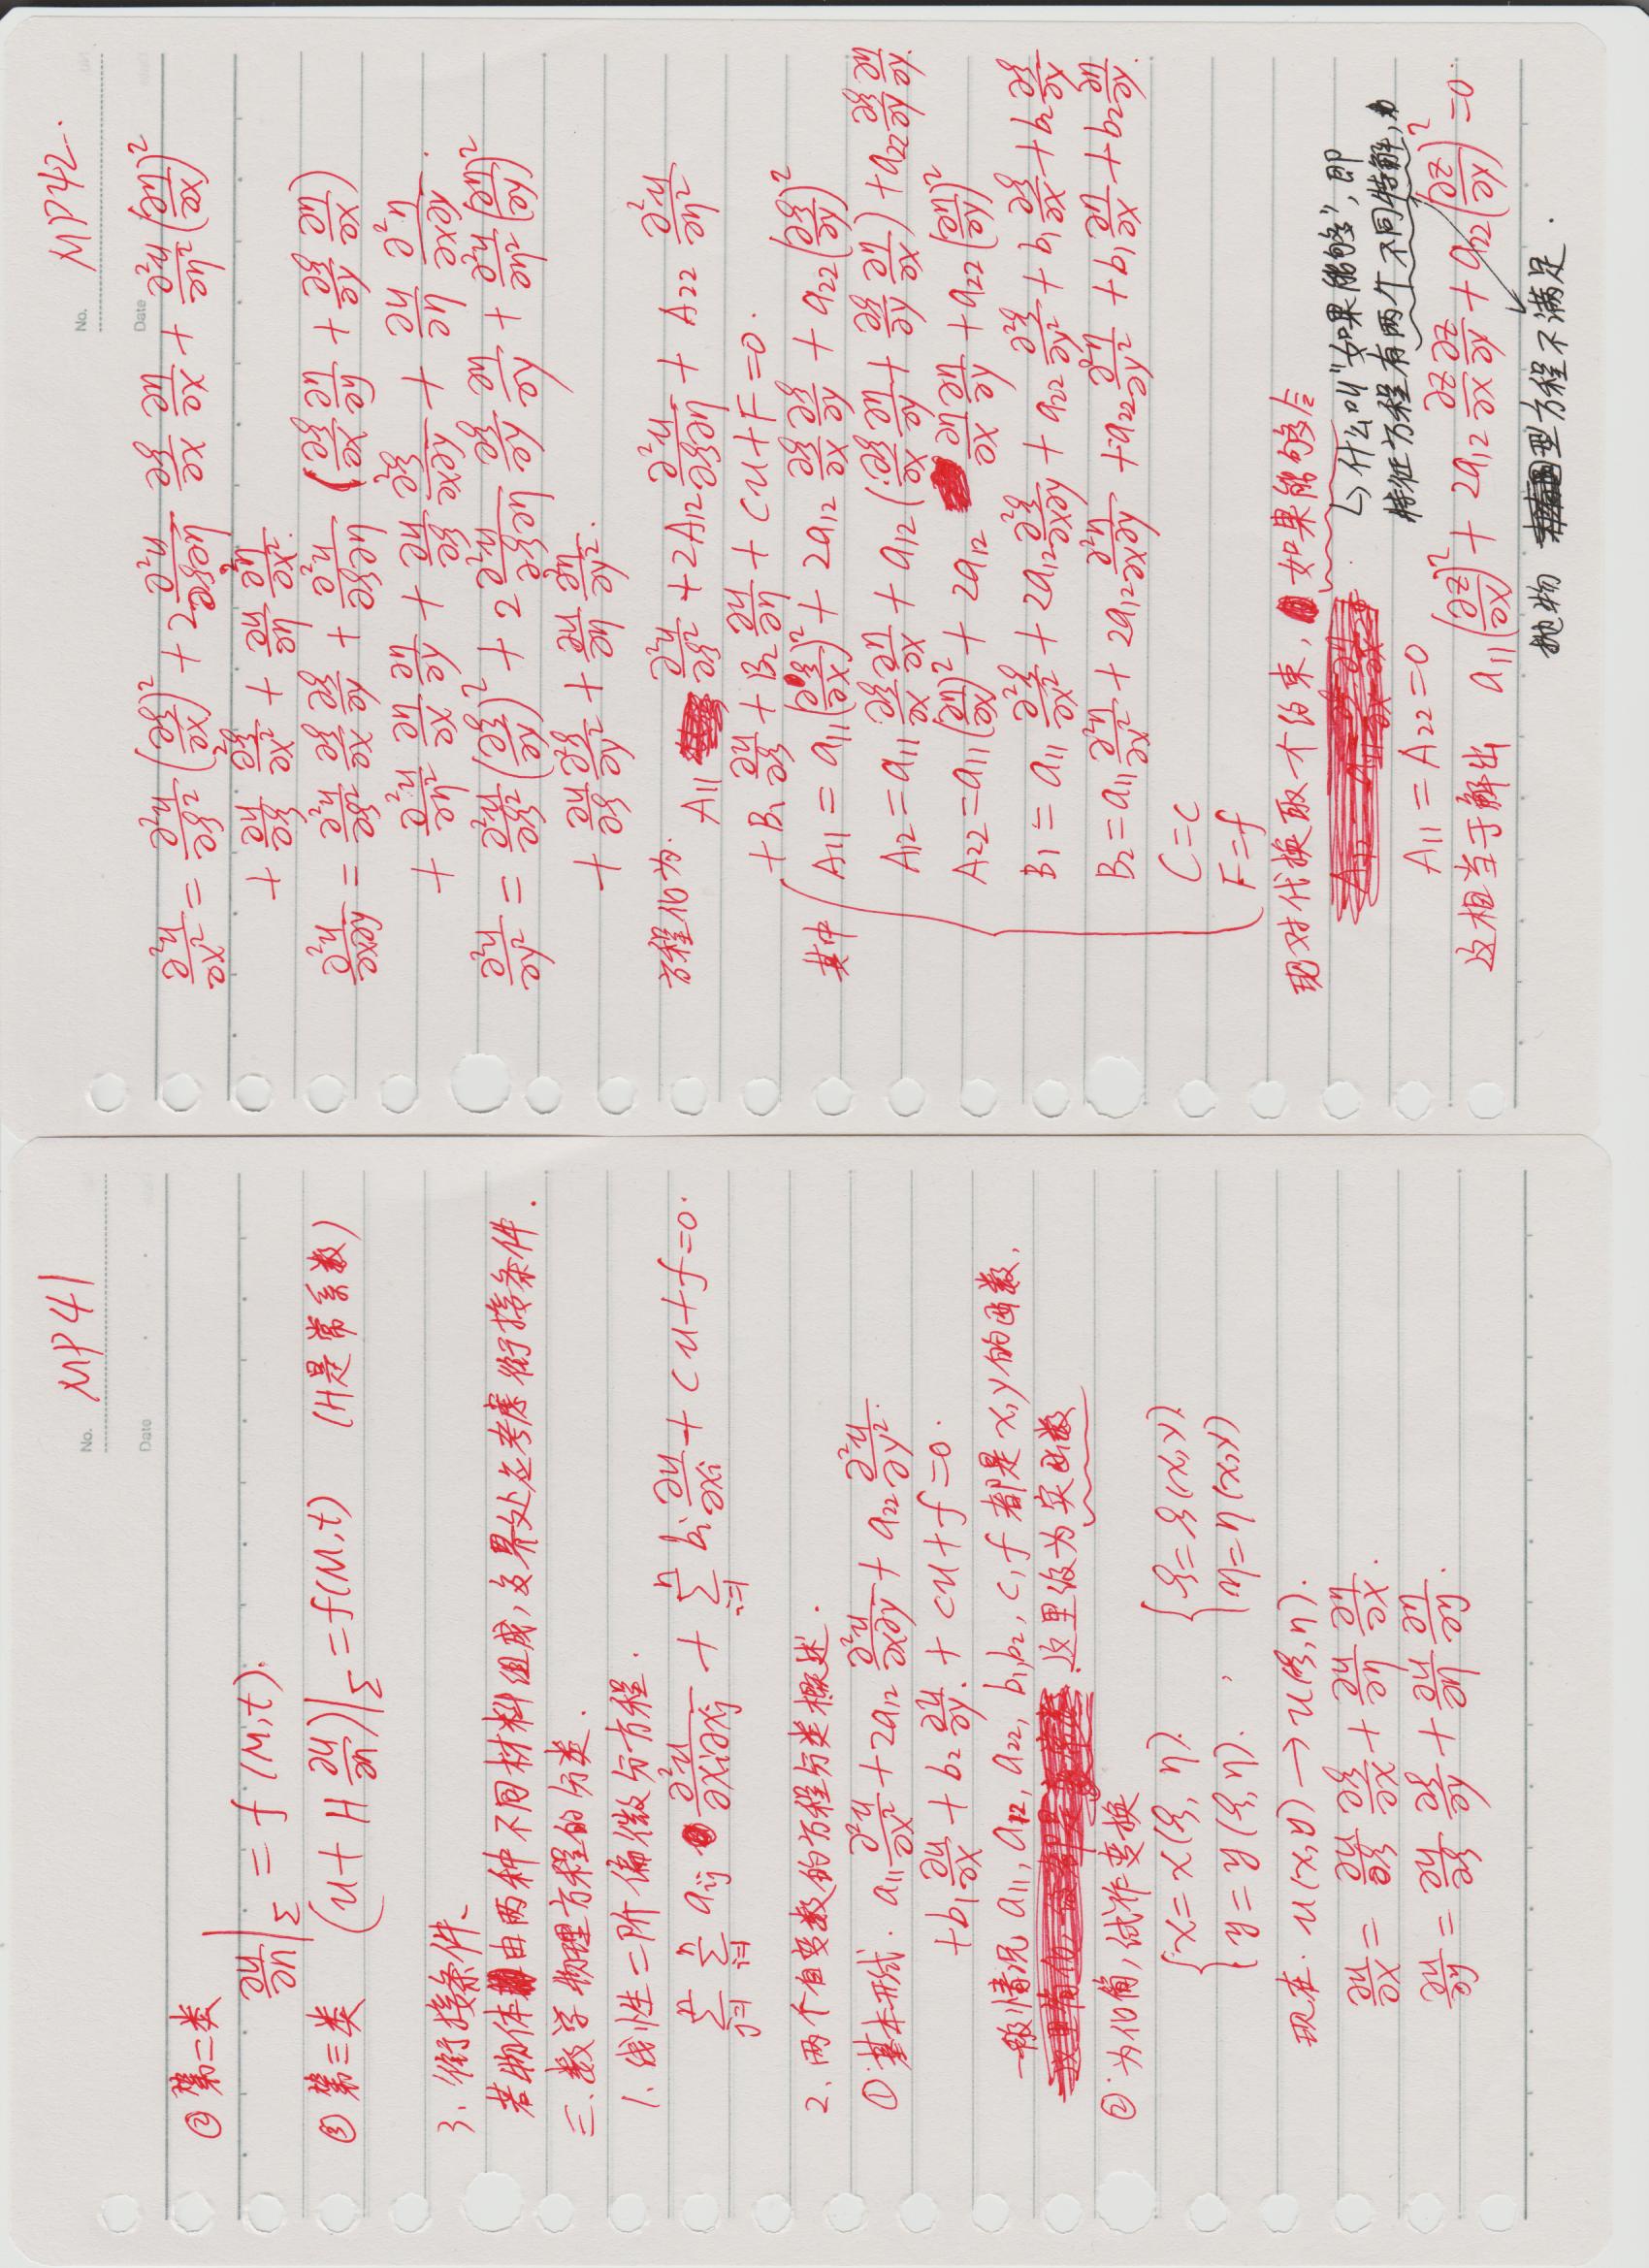 No. MP41
Date
② 第二类
∂u/∂n |_Σ = f (M,t).
③ 第三类 (u + H ∂u/∂n)|_Σ = f(M,t) (H是常系数)
3. 衔接条件、
若物体由两种不同材料组成,交界处应考虑衔接条件.
三. 数学物理方程的分类.
1. 线性二阶偏微分方程.
Σ_{j=1}^n Σ_{i=1}^n a_ij ∂²u/∂x_i∂x_j + Σ_{i=1}^n b_i ∂u/∂x_i + cu + f = 0.
2. 两个自变数的方程分类概述.
① 基本形式. a_11 ∂²u/∂x² + 2a_12 ∂²u/∂x∂y + a_22 ∂²u/∂y²
+ b_1 ∂u/∂x + b_2 ∂u/∂y + cu + f = 0.
一般情况 a_11, a_12, a_22, b_1, b_2, c, f 都是 x, y 的函数.
这里设为实函数
② 为化简, 试作变换
{ x = x(ξ, η) , { ξ = ξ(x,y)
y = y(ξ,η). η = η(x,y)
现在. u(x,y) → u(ξ,η).
∂u/∂x = ∂u/∂ξ ∂ξ/∂x + ∂u/∂η ∂η/∂x.
∂u/∂y = ∂u/∂ξ ∂ξ/∂y + ∂u/∂η ∂η/∂y.
No. MP42.
Date
∂²u/∂x² = ∂²u/∂ξ² (∂ξ/∂x)² + 2 ∂²u/∂ξ∂η ∂ξ/∂x ∂η/∂x + ∂²u/∂η² (∂η/∂x)²
+ ∂u/∂ξ ∂²ξ/∂x² + ∂u/∂η ∂²η/∂x².
∂²u/∂x∂y = ∂²u/∂ξ² ∂ξ/∂x ∂ξ/∂y + ∂²u/∂ξ∂η (∂ξ/∂x ∂η/∂y + ∂ξ/∂y ∂η/∂x)
+ ∂²u/∂η² ∂η/∂x ∂η/∂y + ∂u/∂ξ ∂²ξ/∂x∂y + ∂u/∂η ∂²η/∂x∂y.
∂²u/∂y² = ∂²u/∂ξ² (∂ξ/∂y)² + 2 ∂²u/∂ξ∂η ∂ξ/∂y ∂η/∂y + ∂²u/∂η² (∂η/∂y)²
+ ∂u/∂ξ ∂²ξ/∂y² + ∂u/∂η ∂²η/∂y².
方程化为. A_11 ∂²u/∂ξ² + 2A_12 ∂²u/∂ξ∂η + A_22 ∂²u/∂η²
+ B_1 ∂u/∂ξ + B_2 ∂u/∂η + Cu + F = 0.
其中 { A_11 = a_11 (∂ξ/∂x)² + 2a_12 ∂ξ/∂x ∂ξ/∂y + a_22 (∂ξ/∂y)²
A_12 = a_11 ∂ξ/∂x ∂η/∂x + a_12 (∂ξ/∂x ∂η/∂y + ∂ξ/∂y ∂η/∂x) + a_22 ∂ξ/∂y ∂η/∂y.
A_22 = a_11 (∂η/∂x)² + 2a_12 ∂η/∂x ∂η/∂y + a_22 (∂η/∂y)²
B_1 = a_11 ∂²ξ/∂x² + 2a_12 ∂²ξ/∂x∂y + a_22 ∂²ξ/∂y² + b_1 ∂ξ/∂x + b_2 ∂ξ/∂y
B_2 = a_11 ∂²η/∂x² + 2a_12 ∂²η/∂x∂y + a_22 ∂²η/∂y² + b_1 ∂η/∂x + b_2 ∂η/∂y.
C = c
F = f
现对代换取才约束, 如果能够令
↳ 什么叫"如果能够", 即
特征方程有两个不同特解,
A_11 = A_22 = 0
这相当于解出 a_11 (∂z/∂x)² + 2a_12 ∂z/∂x ∂z/∂y + a_22 (∂z/∂y)² = 0.
抛物型方程不满足.